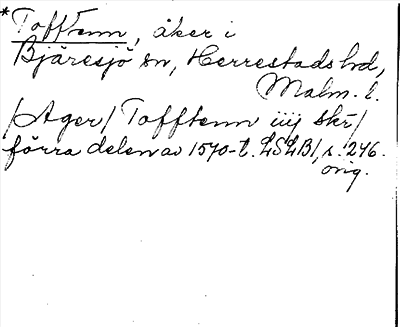 *Tofftenn, åker i
Bjäresjö sn, Herrestads hd,
Malm. l.
/Ager/ Tofftenn iiij skr/
förra delen av 1570-t. LSLB1, s. 246.
orig.